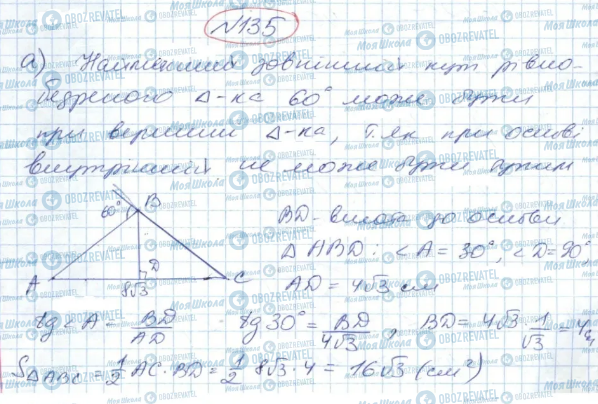 №135
а) Найменший зовнішній кут рівно-
бедреного Δ-ка 60° може бути
при вершині Δ-ка, т.як при основі
внутрішній не може бути тупим
60° B
BD - висота до основи
Δ ABD: <A = 30°, <D=90°
D
A C
8√3
AD = 4√3 см
tg<A = BD/AD tg30° = BD/4√3, BD = 4√3 · 1/√3 = 4
S△ABC = 1/2 AC·BD = 1/2 8√3·4 = 16√3 (см²)
Моя Школа
OBOZREVATEL